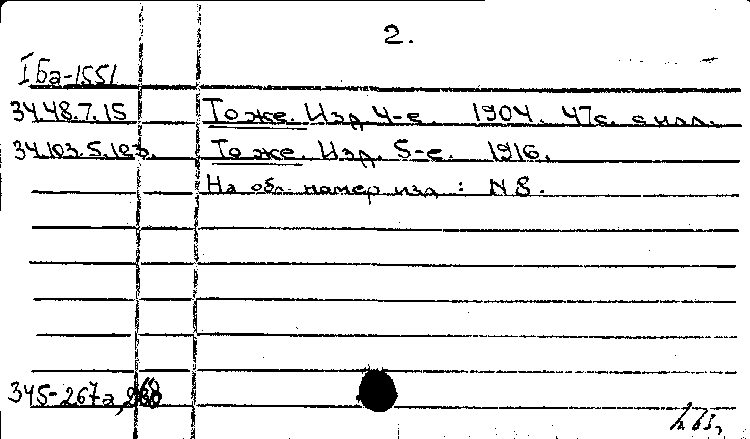 2.
I Ба-1551
34.48.7.15 То же. Изд 4-е. 1904. 47с. с илл.
34.103.5.103. То же. Изд. 5-е. 1916.
На обл. намер изд : N 8.
345-267а,